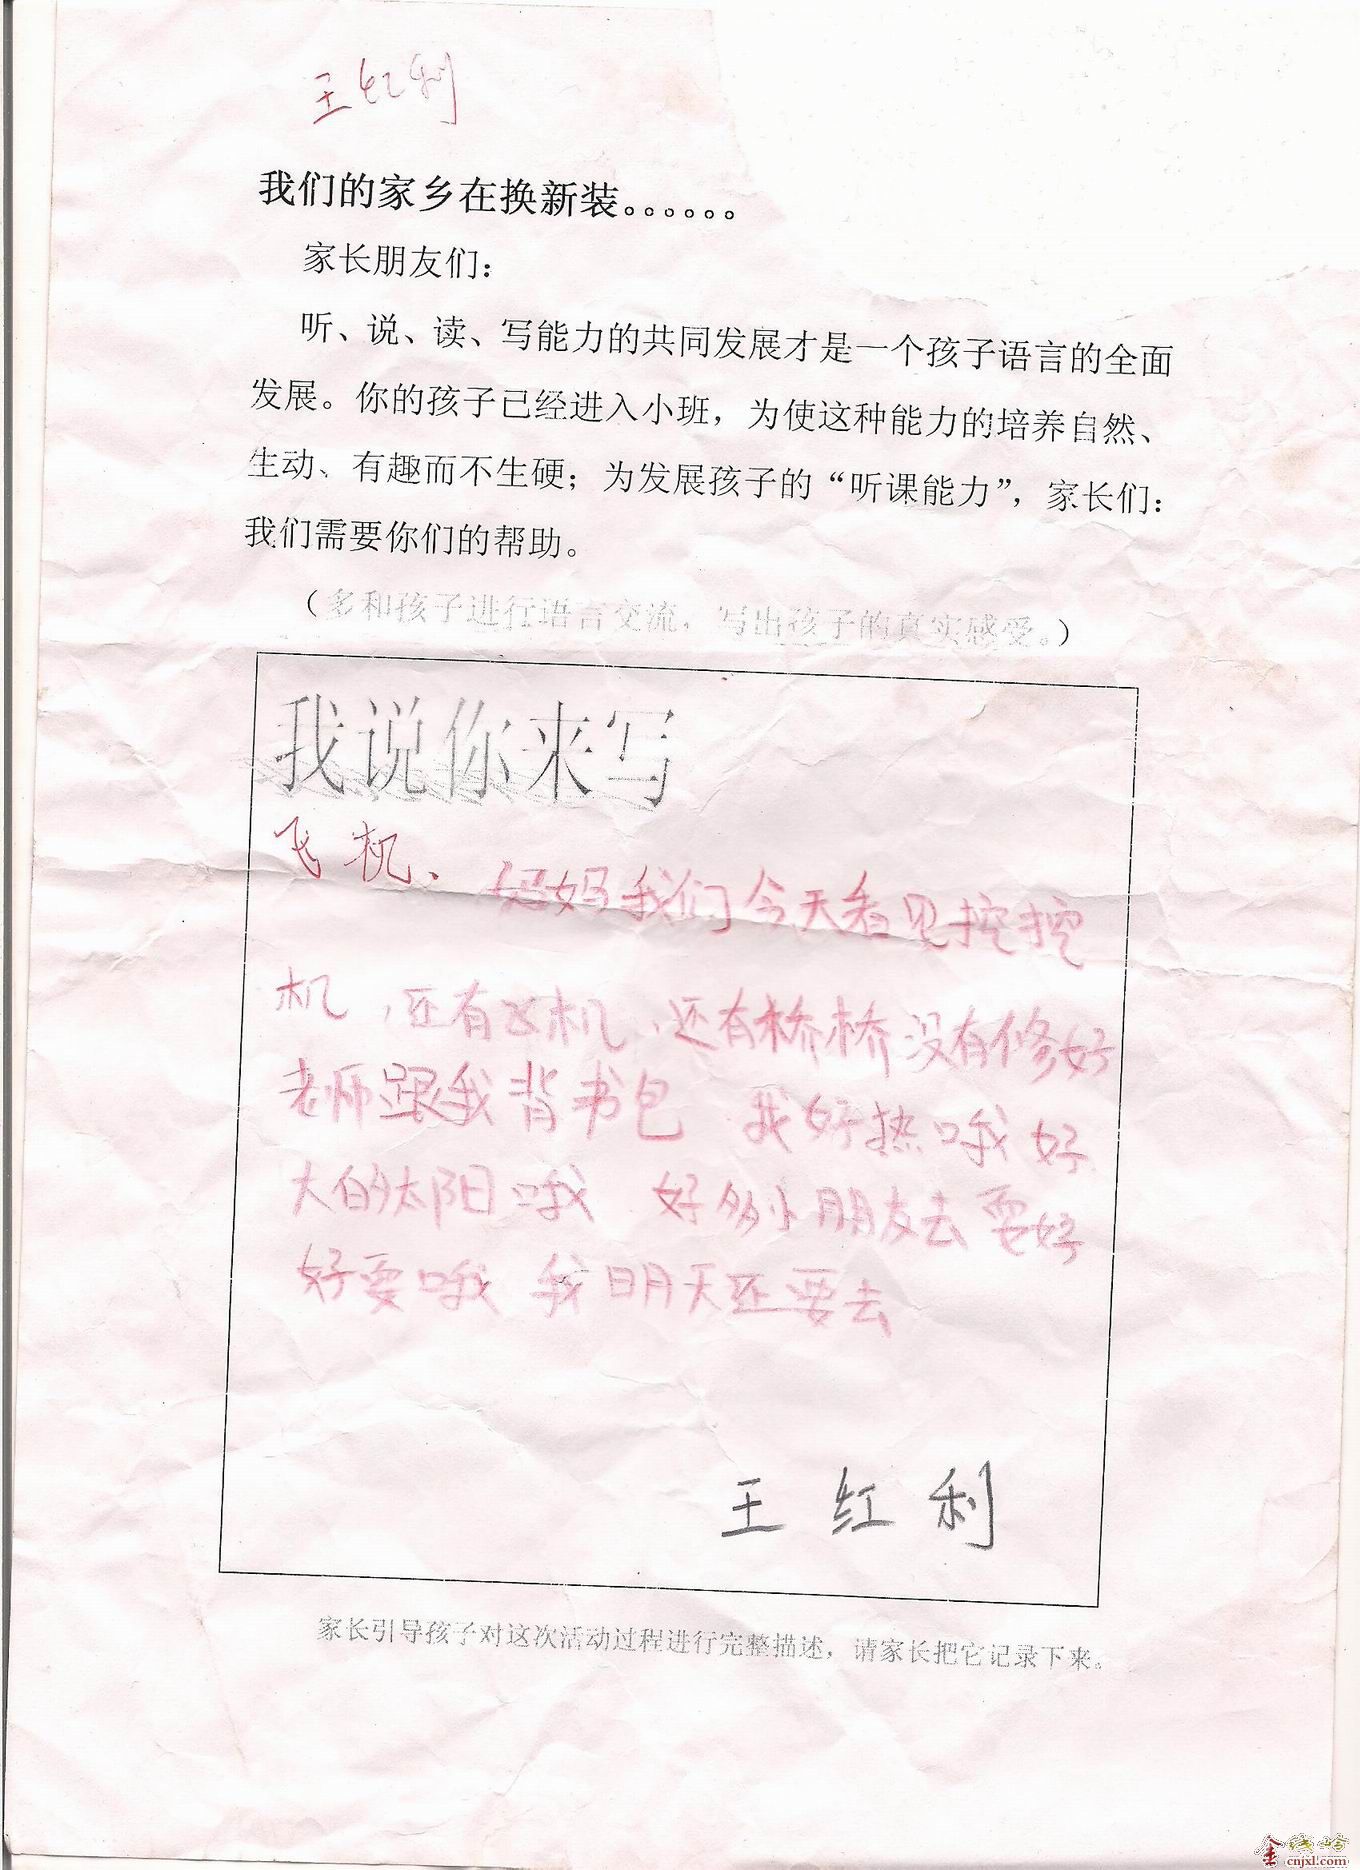 王红利
我们的家乡在换新装。。。。。。
家长朋友们：
听、说、读、写能力的共同发展才是一个孩子语言的全面
发展。你的孩子已经进入小班，为使这种能力的培养自然、
生动、有趣而不生硬；为发展孩子的“听课能力”，家长们：
我们需要你们的帮助。
（多和孩子进行语言交流，写出孩子的真实感受。）
我说你来写
飞机、 妈妈我们今天看见挖挖
机，还有飞机，还有桥桥没有修好
老师跟我背书包 我好热哦 好
大的太阳哦 好多小朋友去耍好
好耍哦 我明天还要去
王红利
家长引导孩子对这次活动过程进行完整描述，请家长把它记录下来。
cnjxl.com